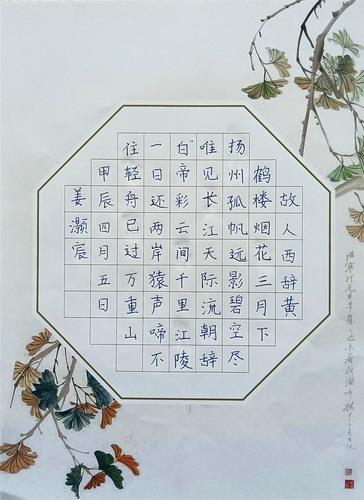 故人西辞黄
鹤楼烟花三月下
扬州孤帆远影碧空尽
唯见长江天际流朝辞
白帝彩云间千里江陵
一日还两岸猿声啼不
住轻舟已过万重山
甲辰四月五日
姜灏宸